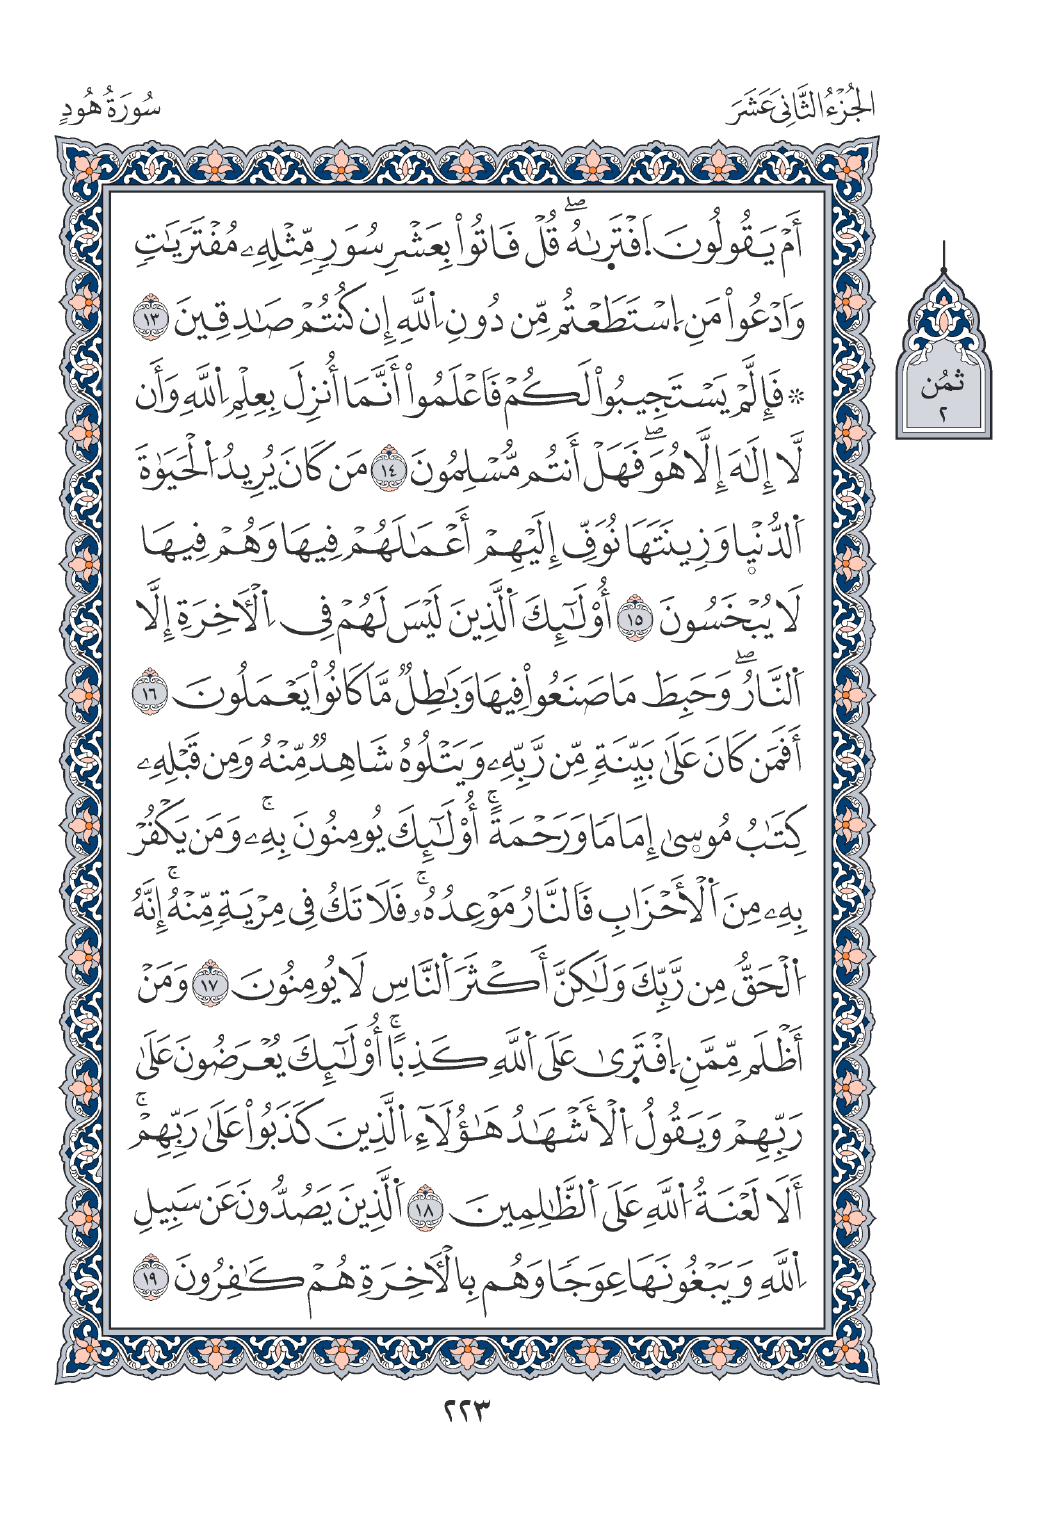 الجُزْءُ الثَّانِيَ عَشَرَ
سُورَةُ هُودٍ
أَمْ يَقُولُونَ اَ۪فْتَر۪ىٰهُۖ قُلْ فَاتُواْ بِعَشْرِ سُوَرٖ مِّثْلِهِۦ مُفْتَرَيَٰتٖ
وَادْعُواْ مَنِ اِ۪سْتَطَعْتُم مِّن دُونِ اِ۬للَّهِ إِن كُنتُمْ صَٰدِقِينَ ١٣
۞ فَإِلَّمْ يَسْتَجِيبُواْ لَكُمْ فَاعْلَمُواْ أَنَّمَا أُنزِلَ بِعِلْمِ اِ۬للَّهِ وَأَن
لَّا إِلَٰهَ إِلَّا هُوَۖ فَهَلْ أَنتُم مُّسْلِمُونَ ١٤ مَن كَانَ يُرِيدُ اُ۬لْحَيَوٰةَ
اَ۬لدُّنْي۪ا وَزِينَتَهَا نُوَفِّ إِلَيْهِمْ أَعْمَٰلَهُمْ فِيهَا وَهُمْ فِيهَا
لَا يُبْخَسُونَ ١٥ أُوْلَٰٓئِكَ اَ۬لَّذِينَ لَيْسَ لَهُمْ فِي اِ۬لْأٓخِرَةِ إِلَّا
اَ۬لنَّارُۖ وَحَبِطَ مَا صَنَعُواْ فِيهَا وَبَٰطِلٞ مَّا كَانُواْ يَعْمَلُونَ ١٦
أَفَمَن كَانَ عَلَىٰ بَيِّنَةٖ مِّن رَّبِّهِۦ وَيَتْلُوهُ شَاهِدٞ مِّنْهُ وَمِن قَبْلِهِۦ
كِتَٰبُ مُوس۪ىٰ إِمَامٗا وَرَحْمَةًۚ أُوْلَٰٓئِكَ يُومِنُونَ بِهِۦۚ وَمَن يَكْفُرْ
بِهِۦ مِنَ اَ۬لْأَحْزَابِ فَالنَّارُ مَوْعِدُهُۥۚ فَلَا تَكُ فِي مِرْيَةٖ مِّنْهُۚ إِنَّهُ
اُ۬لْحَقُّ مِن رَّبِّكَ وَلَٰكِنَّ أَكْثَرَ اَ۬لنَّاسِ لَا يُومِنُونَ ١٧ وَمَنْ
أَظْلَم مِّمَّنِ اِ۪فْتَر۪ىٰ عَلَى اَ۬للَّهِ كَذِبًاۚ أُوْلَٰٓئِكَ يُعْرَضُونَ عَلَىٰ
رَبِّهِمْ وَيَقُولُ اُ۬لْأَشْهَٰدُ هَٰؤُلَآءِ اِ۬لَّذِينَ كَذَبُواْ عَلَىٰ رَبِّهِمْۚ
أَلَا لَعْنَةُ اُ۬للَّهِ عَلَى اَ۬لظَّٰلِمِينَ ١٨ اَ۬لَّذِينَ يَصُدُّونَ عَن سَبِيلِ
اِ۬للَّهِ وَيَبْغُونَهَا عِوَجٗا وَهُم بِالْأٓخِرَةِ هُمْ كَٰفِرُونَ ١٩
ثُمُن
٢
٢٢٣